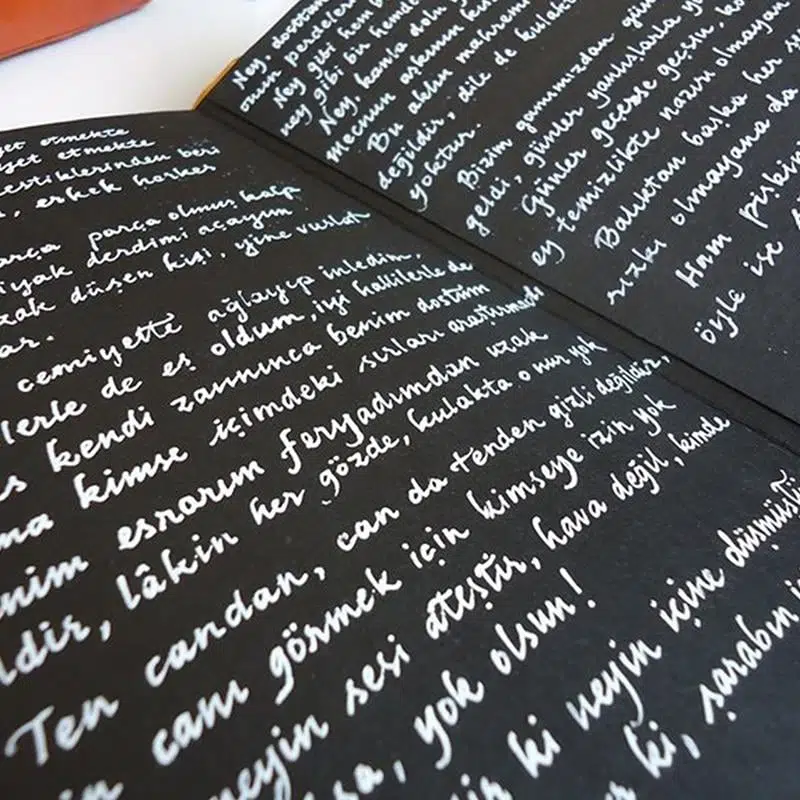 yet etmekte
yet etmekte
estiklerinden beri
, erkek herkes
arça parça olmuş kalp
iyak derdimi açayım
zak düşen kişi, yine vuslat
ar.
cemiyette ağlayıp inledim,
lerle de eş oldum, iyi hallilerle de
s kendi zannınca benim dostum
ma kimse içimdeki sırları araştırmadı
nim esrarım feryadımdan uzak
ldir, lâkin her gözde, kulakta o nur yok
Ten candan, can da tenden gizli değildir,
in canı görmek için kimseye izin yok
neyin sesi ateştir, hava değil, kimde
sa, yok olsun!
dir ki neyin içine düşmüştü
r ki, şarabın i
Ney, dosttan
onun perdeleri
Ney gibi hem
ney gibi bir hemde
Ney, kanla dolu
mecnun aşkının
Bu aklın mahremi
değildir, dile de kulakt
yoktur.
Bizim gamımızdan gün
geldi, günler yanışlarla yo
Günler geçerse geçsin, ko
ey temizlikte naziri olmayan
Balıktan başka her şe
rızkı olmayana da
Ham pişkin
öyle ise s